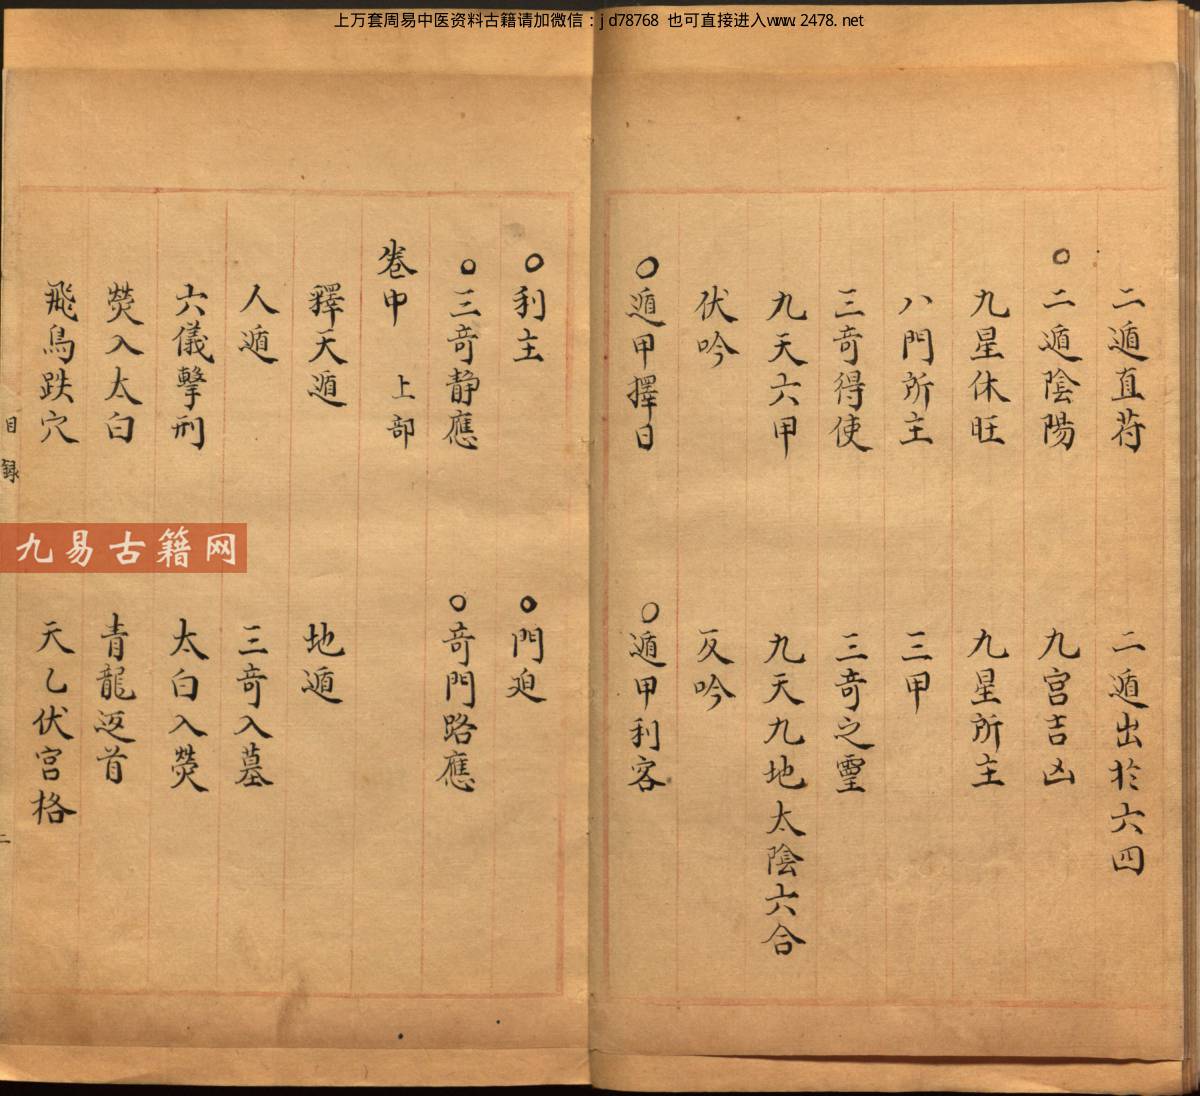 上万套周易中医资料古籍请加微信：jd78768 也可直接进入www.2478.net
二遁直苻 二遁出於六四
○二遁陰陽 九宮吉凶
九星休旺 九星所主
八門所主 三甲
三奇得使 三奇之靈
九天六甲 九天九地太陰六合
伏吟 反吟
○遁甲擇日 ○遁甲利客
○利主 ○門迫
○三奇静應 ○奇門路應
卷中 上部
釋天遁 地遁
人遁 三奇入墓
六儀擊刑 太白入熒
熒入太白 青龍返首
飛鳥跌穴 天乙伏宮格
目録
二
九易古籍网